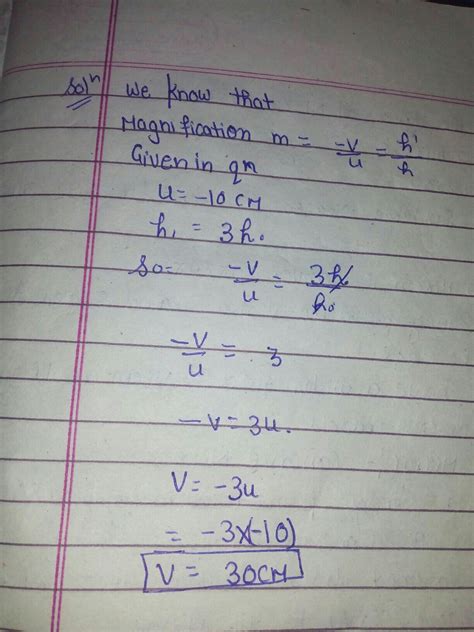 Solⁿ We know that
Magnification m = -v/u = h'/h
Given in qn
u = -10 cm
h₁ = 3h₀
So = -v/u = 3h₀/h₀
-v/u = 3
-v = 3u.
V = -3u
= -3x(-10)
V = 30cm